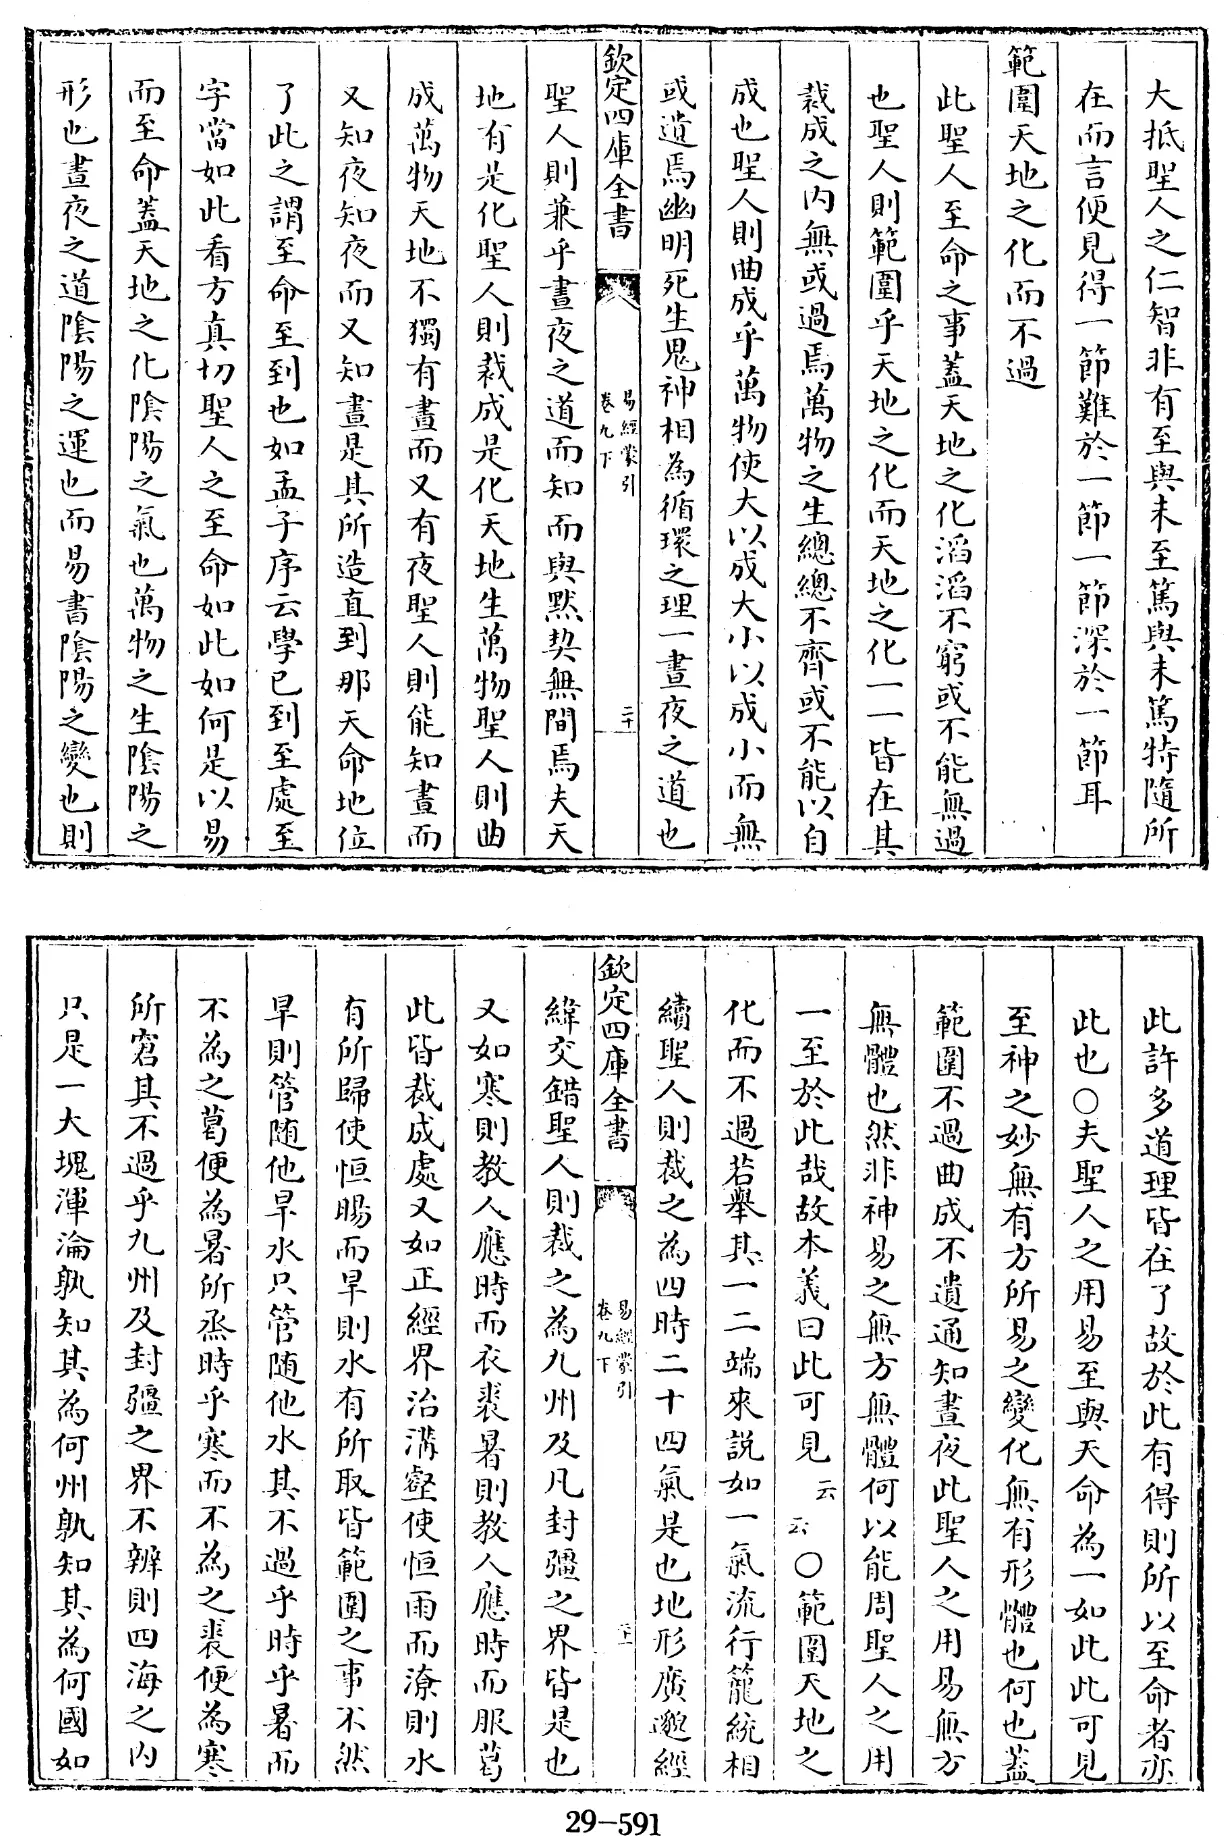 大抵聖人之仁智非有至與未至篤與未篤特隨所
在而言便見得一節難於一節一節深於一節耳
範圍天地之化而不過
此聖人至命之事蓋天地之化滔滔不窮或不能無過
也聖人則範圍乎天地之化而天地之化一一皆在其
裁成之内無或過焉萬物之生總總不齊或不能以自
成也聖人則曲成乎萬物使大以成大小以成小而無
或遺焉幽明死生鬼神相為循環之理一晝夜之道也
欽定四庫全書
易經蒙引
卷九下
二十
聖人則兼乎晝夜之道而知而與黙契無間焉夫天
地有是化聖人則裁成是化天地生萬物聖人則曲
成萬物天地不獨有晝而又有夜聖人則能知晝而
又知夜知夜而又知晝是其所造直到那天命地位
了此之謂至命至到也如孟子序云學已到至處至
字當如此看方真切聖人之至命如此如何是以易
而至命蓋天地之化陰陽之氣也萬物之生陰陽之
形也晝夜之道陰陽之運也而易書陰陽之變也則
此許多道理皆在了故於此有得則所以至命者亦
此也○夫聖人之用易至與天命為一如此此可見
至神之妙無有方所易之變化無有形體也何也蓋
範圍不過曲成不遺通知晝夜此聖人之用易無方
無體也然非神易之無方無體何以能周聖人之用
一至於此哉故本義曰此可見云云○範圍天地之
化而不過若舉其一二端來説如一氣流行籠統相
續聖人則裁之為四時二十四氣是也地形廣邈經
欽定四庫全書
易經蒙引
卷九下
二十一
緯交錯聖人則裁之為九州及凡封疆之界皆是也
又如寒則教人應時而衣裘暑則教人應時而服葛
此皆裁成處又如正經界治溝壑使恒雨而潦則水
有所歸使恒暘而旱則水有所取皆範圍之事不然
旱則管随他旱水只管随他水其不過乎時乎暑而
不為之葛便為暑所烝時乎寒而不為之裘便為寒
所窘其不過乎九州及封疆之界不辨則四海之内
只是一大塊渾淪孰知其為何州孰知其為何國如
29-591